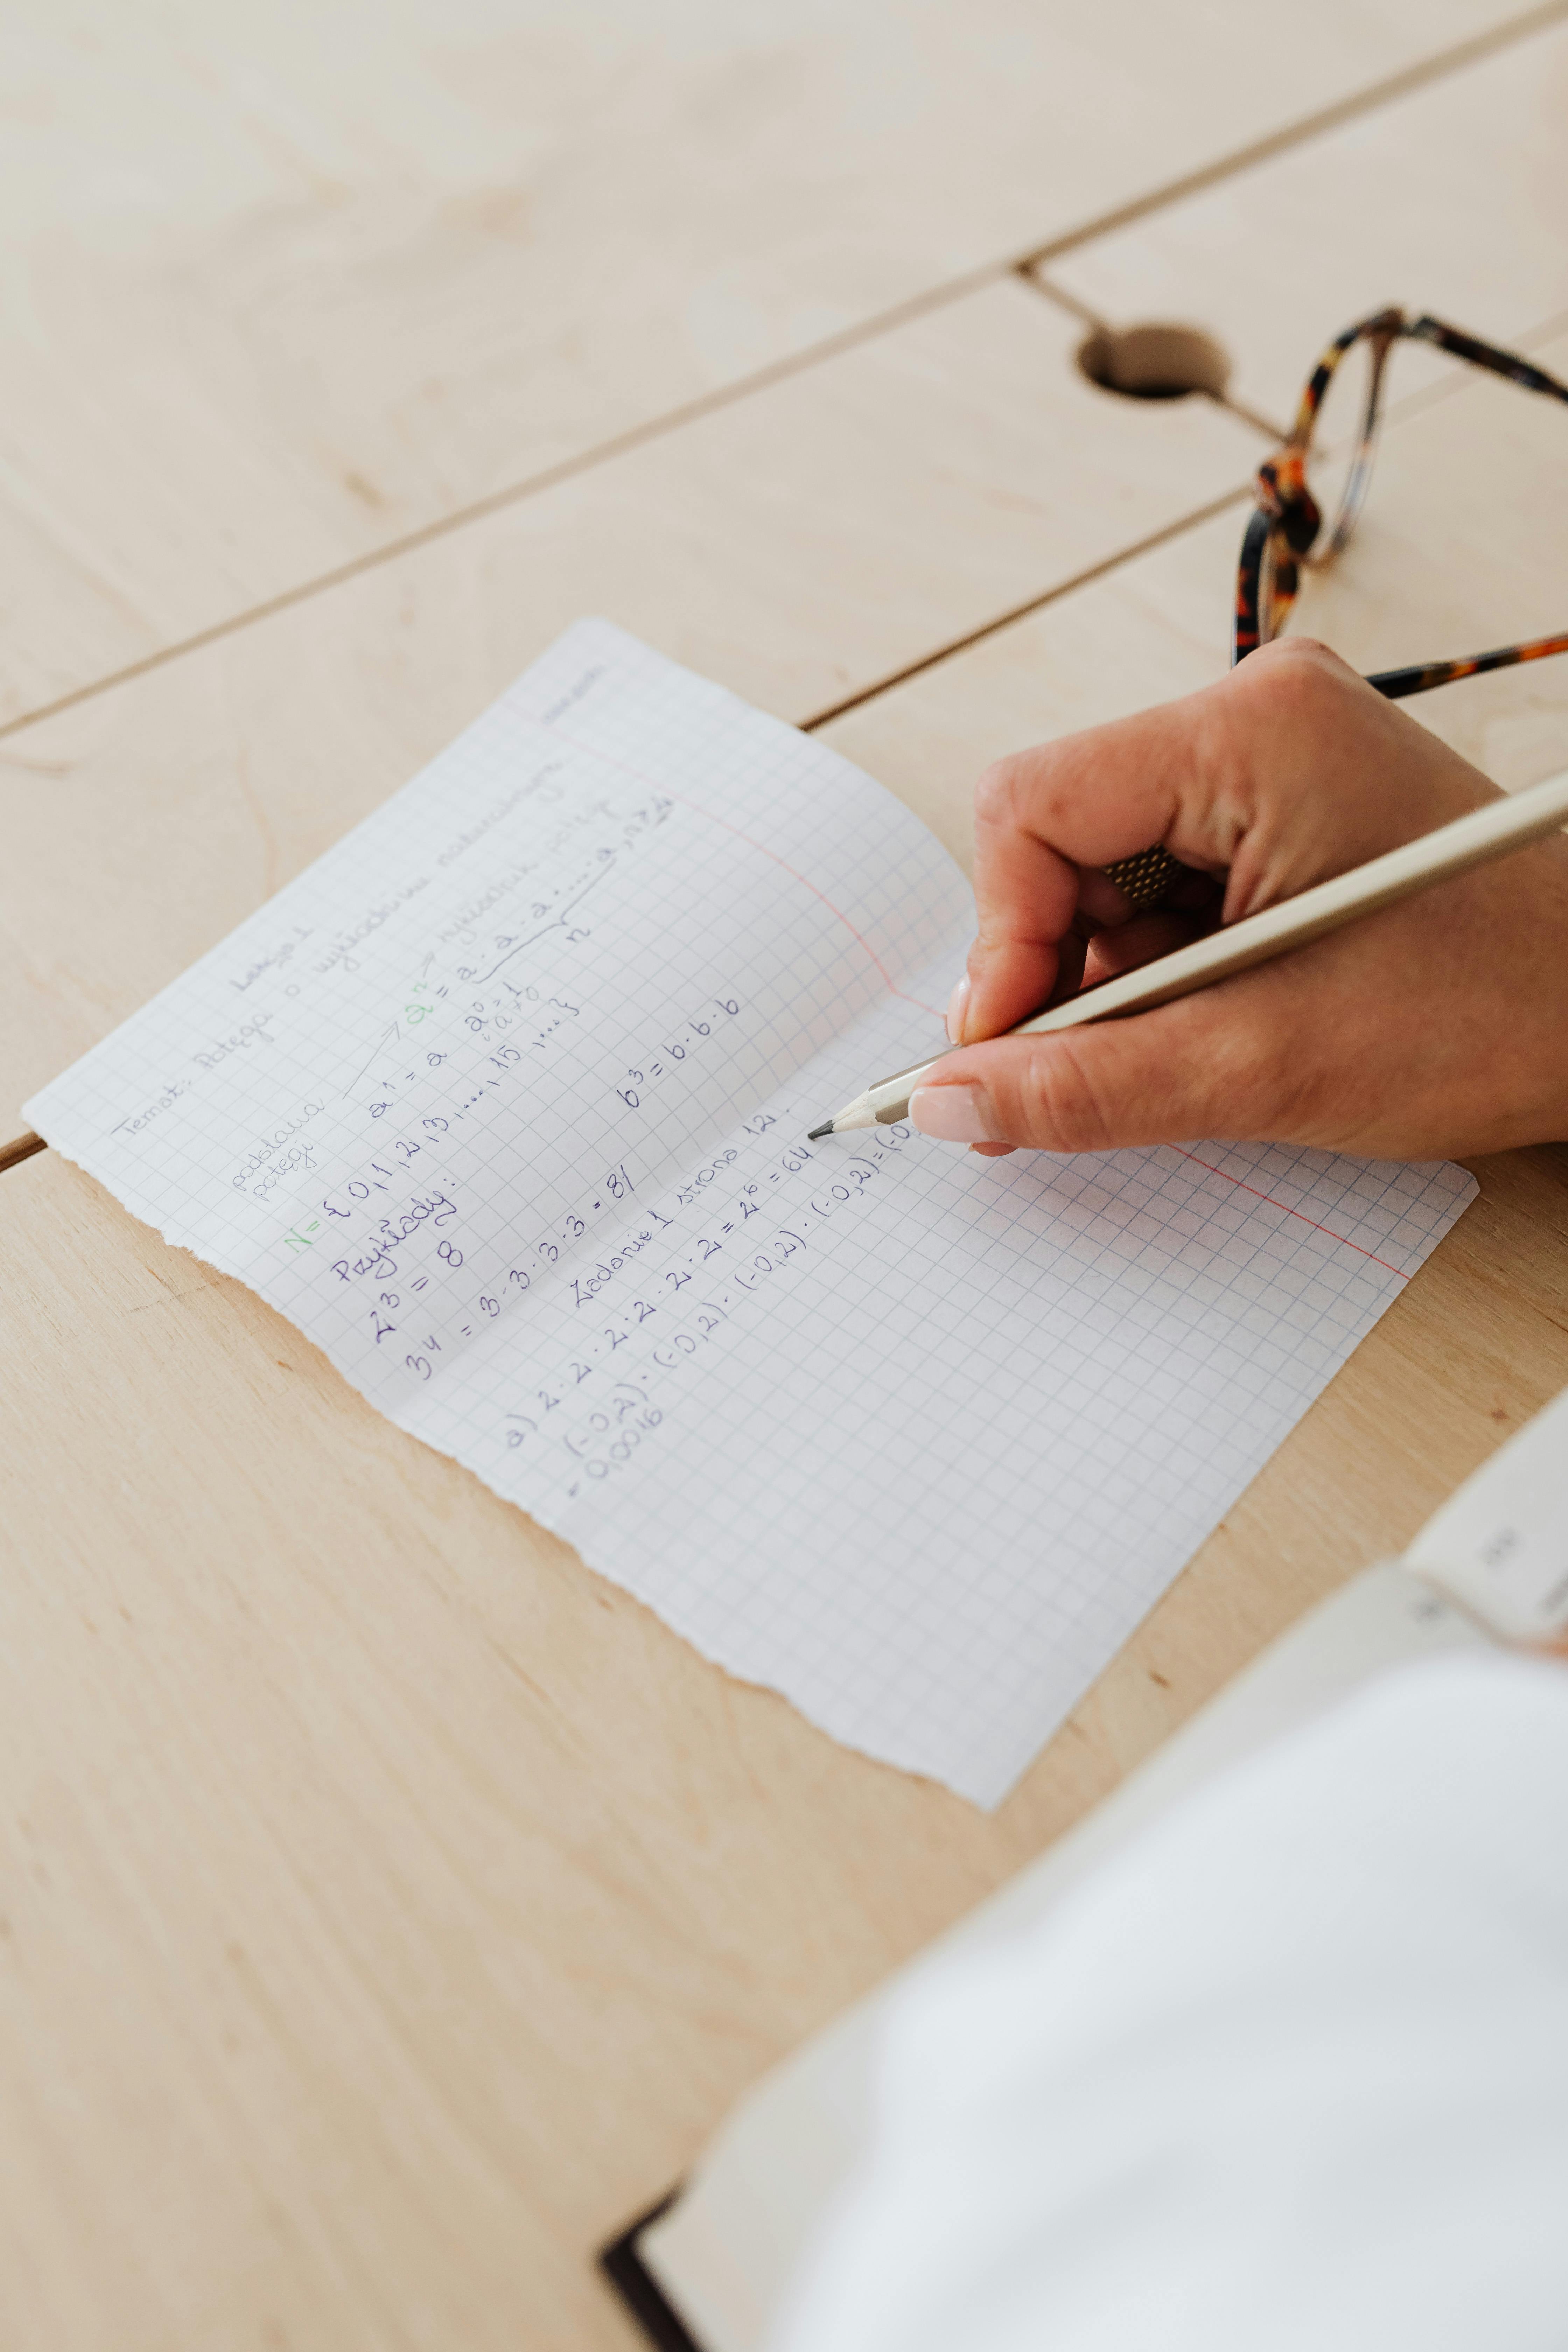 Lekcja 1
Temat: Potęga o wykładniku naturalnym
aⁿ → wykładnik potęgi
podstawa
potęgi
aⁿ = a · a · a · .... a , n ≥ 2
n
a¹ = a a⁰ = 1
a ≠ 0
N = { 0,1,2,3,....,15,...}
Przykłady:
2³ = 8 b³ = b · b · b
3⁴ = 3 · 3 · 3 · 3 = 81
Zadanie 1 strona 12.
a) 2 · 2 · 2 · 2 · 2 · 2 = 2⁶ = 64
(-0,2) · (-0,2) · (-0,2) · (-0,2) = (-0,
= 0,0016